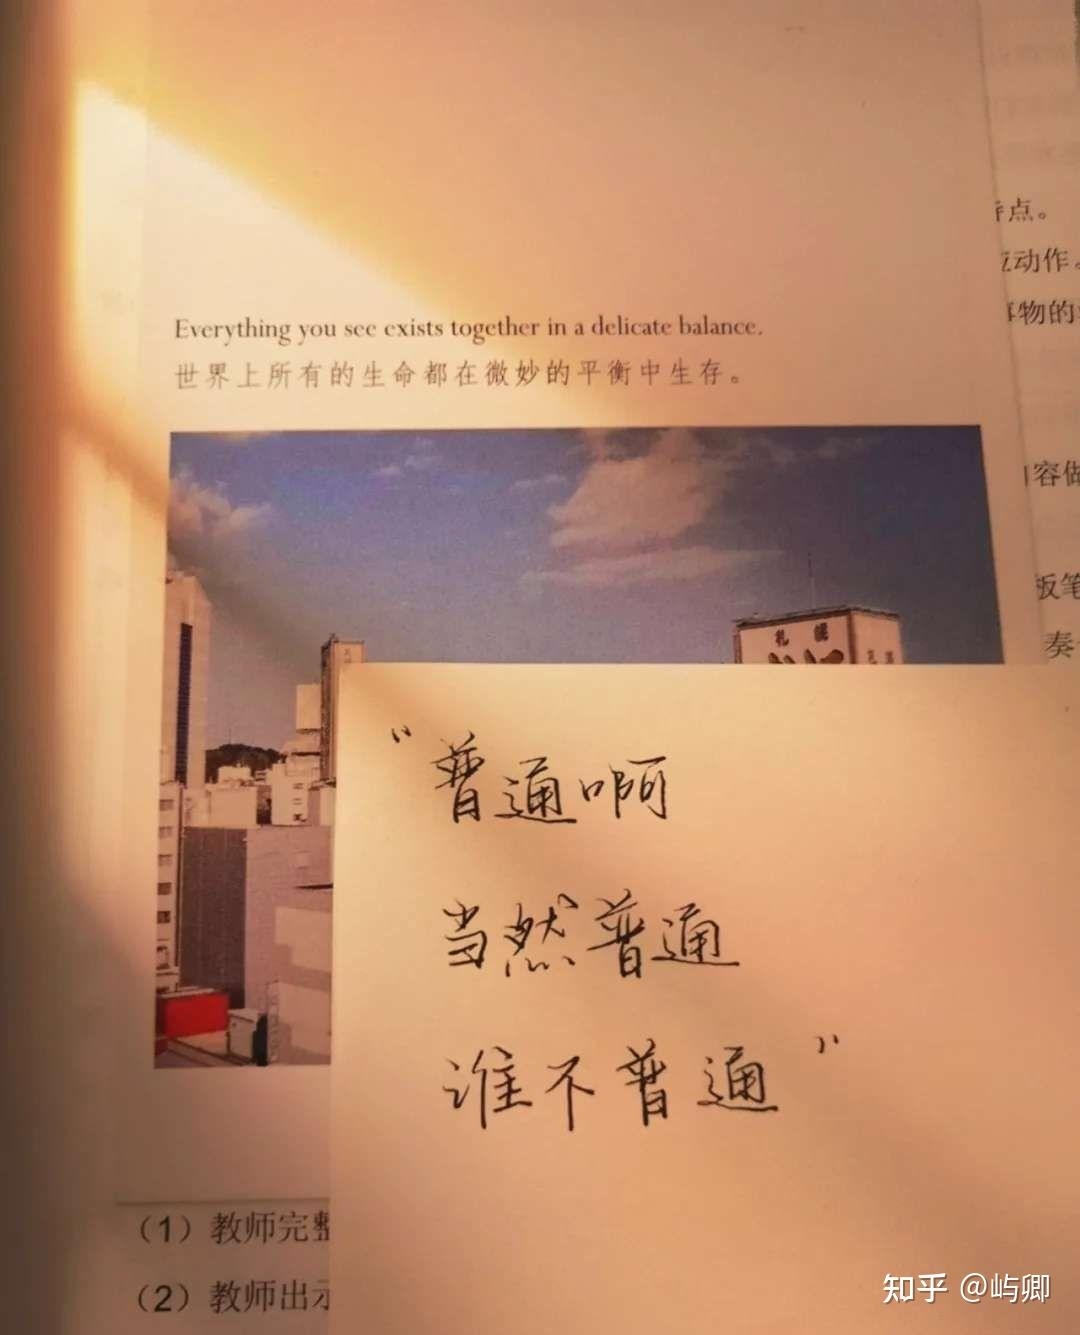 特点。
应动作。
事物的
Everything you see exists together in a delicate balance.
世界上所有的生命都在微妙的平衡中生存。
内容做
板笔
奏
札幌
“普通啊
当然普通
谁不普通”
(1) 教师完整
(2) 教师出示
知乎 @屿卿